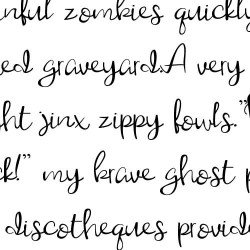 nful zombies quickly
ed graveyard.A very
ht jinx zippy fowls."
k!" my brave ghost p
discotheques provid